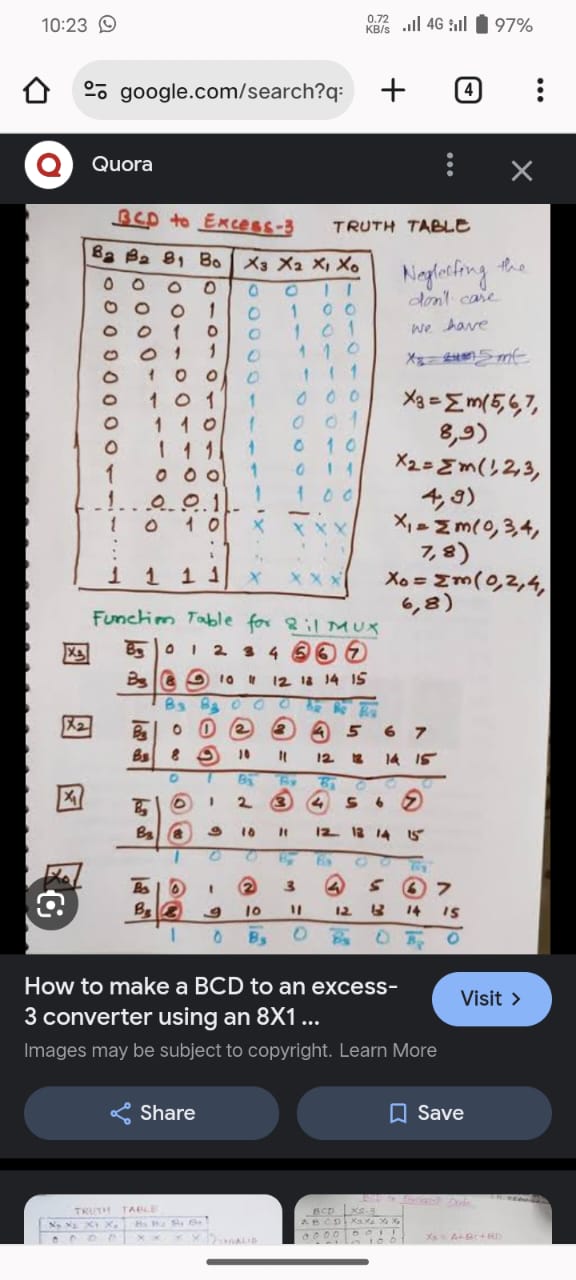 10:23
0.72 KB/s 4G 97%
google.com/search?q=
4
Quora
BCD to Excess-3 TRUTH TABLE
B3 B2 B1 B0 X3 X2 X1 X0
0 0 0 0 0 0 1 1
0 0 0 1 0 1 0 0
0 0 1 0 0 1 0 1
0 0 1 1 0 1 1 0
0 1 0 0 0 1 1 1
0 1 0 1 1 0 0 0
0 1 1 0 1 0 0 1
0 1 1 1 1 0 1 0
1 0 0 0 1 0 1 1
1 0 0 1 1 1 0 0
1 0 1 0 X X X X
1 1 1 1 X X X X
Neglecting the
don't care
we have
X3=Σm(5,6,7,
8,9)
X2=Σm(1,2,3,
4,9)
X1=Σm(0,3,4,
7,8)
X0=Σm(0,2,4,
6,8)
Function Table for 8:1 MUX
X3
B̅3 0 1 2 3 4 5 6 7
B3 8 9 10 11 12 13 14 15
B3 B3 0 0 0 B̅3 B̅3 B̅3
X2
B̅3 0 1 2 3 4 5 6 7
B3 8 9 10 11 12 13 14 15
0 1 B̅3 B̅3 B̅3 0 0 0
X1
B̅3 0 1 2 3 4 5 6 7
B3 8 9 10 11 12 13 14 15
1 0 0 B̅3 B̅3 0 0 B̅3
X0
B̅3 0 1 2 3 4 5 6 7
B3 8 9 10 11 12 13 14 15
1 0 B̅3 0 B̅3 0 B̅3 0
How to make a BCD to an excess-
3 converter using an 8X1 ...
Visit >
Images may be subject to copyright. Learn More
Share
Save
TRUTH TABLE
BCD XS-3